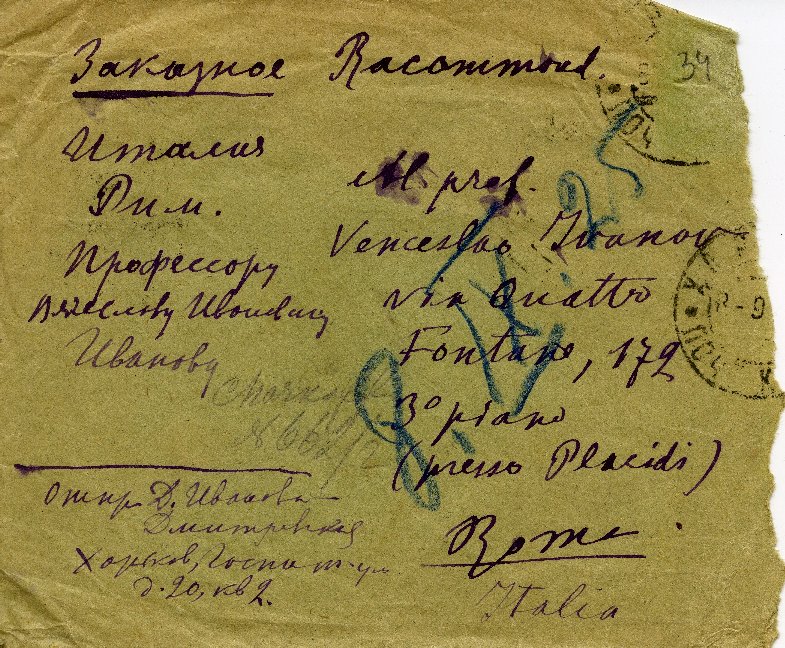 Заказное Racommand.
34
Италия
Рим.
Профессору
Вячеславу Ивановичу
Иванову
Al prof.
Venceslao Ivanov
via Quattro
Fontane, 172
3º piano
(presso Placidi)
Roma.
Italia
Харьков
№ 662/2
Отпр. Д. Иванова-
Дмитревская
Харьков, Госпит. ул.
д. 20, кв 2.